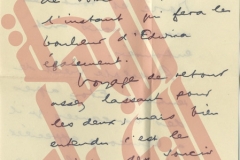 de
l'instant qui fera le
bonheur d'Elvira
également.
Voyage de retour
assez lassant pour
les deux, mais bien
entendu c'est le
des soucis